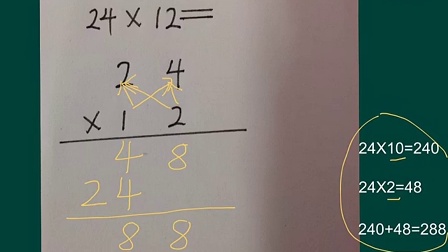 24 × 12 =
2 4
× 1 2
4 8
2 4
8 8
24X10=240
24X2=48
240+48=288